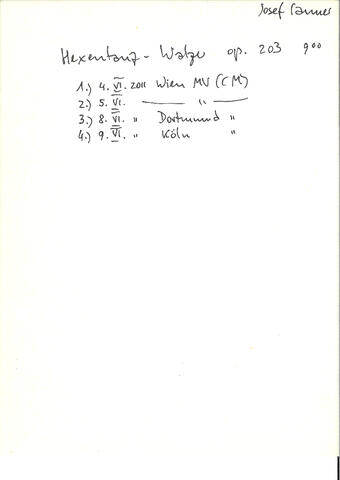 Josef Lanner
Hexentanz - Walzer op. 203 9°°
1.) 4. VI. 2011 Wien MV (CM)
2.) 5. VI. —— " ——
3.) 8. VI. " Dortmund "
4.) 9. VI. " Köln "